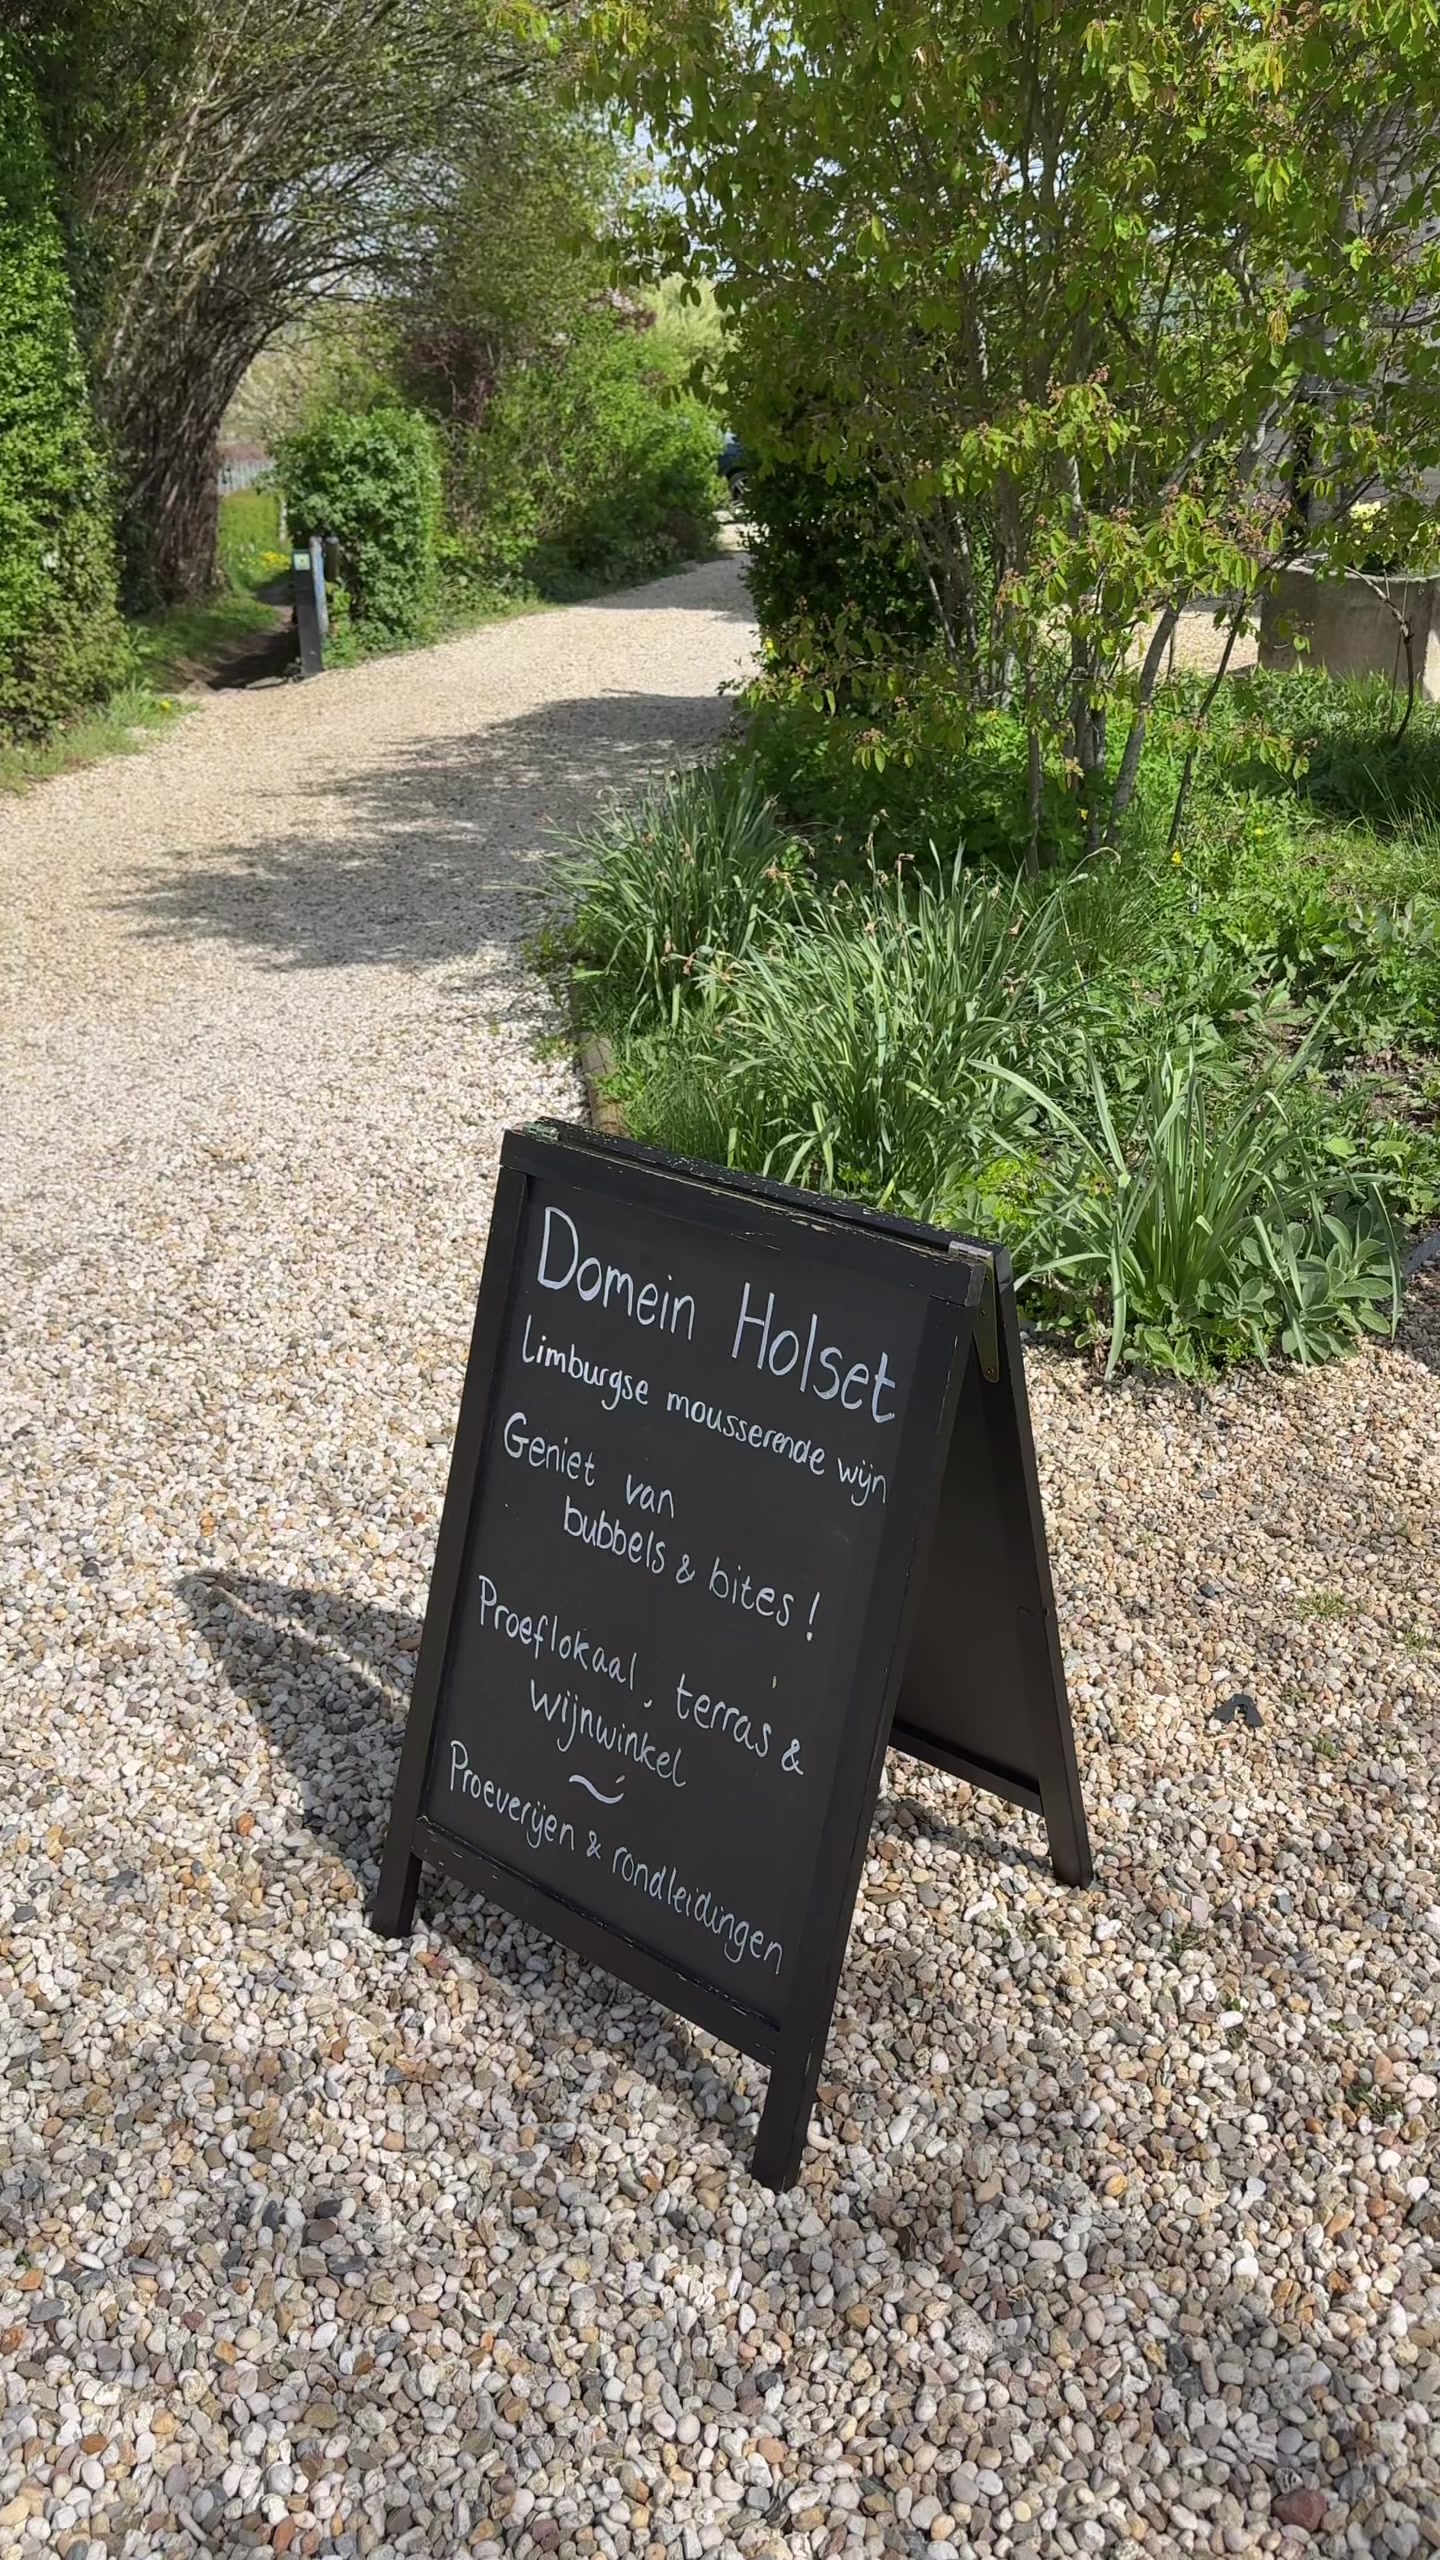 Domein Holset
Limburgse mousserende wijn
Geniet van
bubbels & bites !
Proeflokaal, terras &
wijnwinkel
~
Proeverijen & rondleidingen